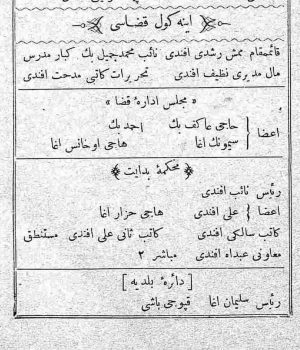 اینه کول قضاسی
قائممقام ممش رشدی افندی نائب محمد جمیل بك کبار مدرس
مال مدیری نظیف افندی تحریرات کاتبی مدحت افندی
« مجلس اداره‌ٔ قضا »
اعضا { حاجی عاکف بك احمد بك
سیمونك اغا هاجی اوخانس اغا
محکمه‌ٔ بدایت
رئیس نائب افندی
اعضا { علی افندی هاجی حزار اغا
کاتب سالکی افندی کاتب ثانی علی افندی مستنطق
معاونی عبداه افندی مباشر ۲
[ دائره‌ٔ بلدیه ]
رئیس سلیمان اغا قپوجی باشی